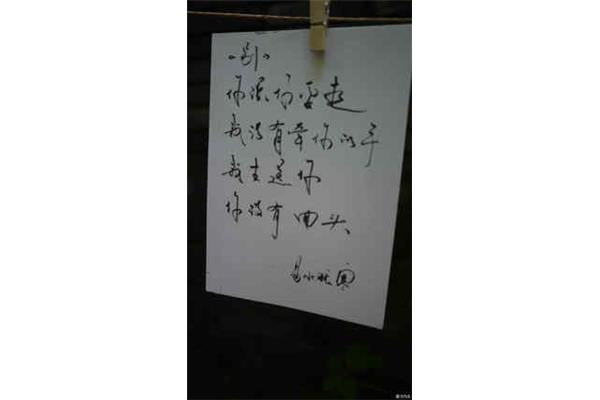 《别》
你说你要走
我没有牵你的手
我去送你
你没有回头